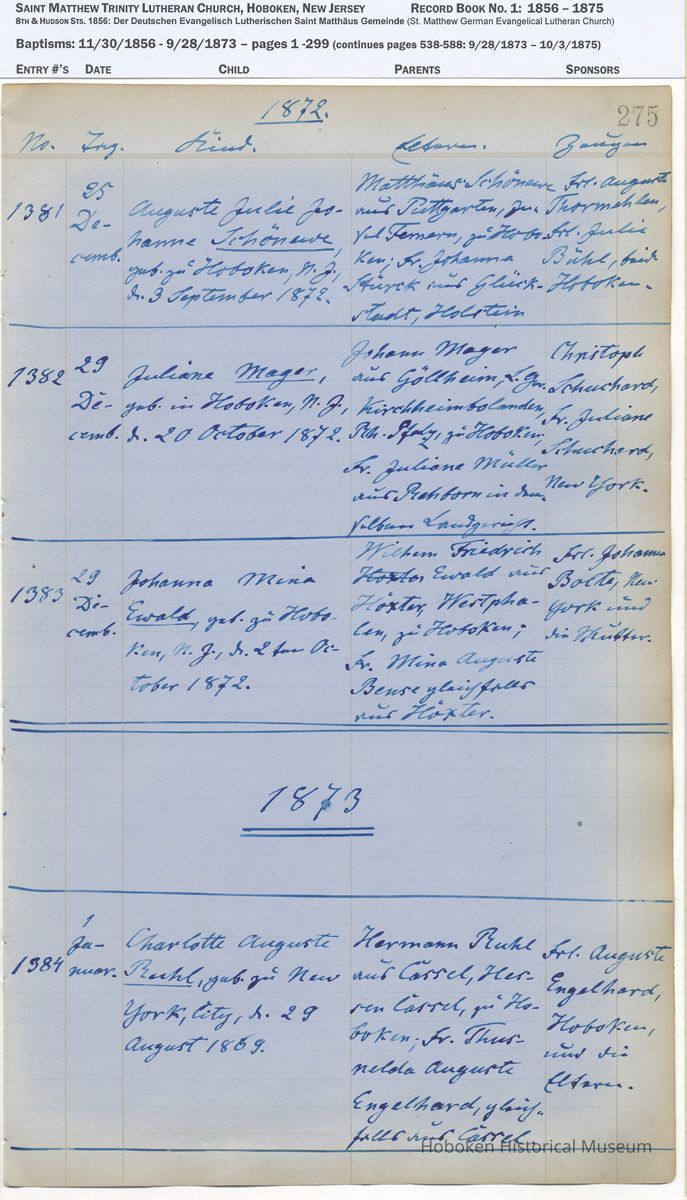 SAINT MATTHEW TRINITY LUTHERAN CHURCH, HOBOKEN, NEW JERSEY RECORD BOOK NO. 1: 1856 – 1875
8TH & HUDSON STS. 1856: Der Deutschen Evangelisch Lutherischen Saint Matthäus Gemeinde (St. Matthew German Evangelical Lutheran Church)
Baptisms: 11/30/1856 - 9/28/1873 – pages 1 -299 (continues pages 538-588: 9/28/1873 – 10/3/1875)
ENTRY #'S DATE CHILD PARENTS SPONSORS
1872.
275
No. Tag. Kind. Eltern. Zeugen
1381
25
De-
cemb.
Auguste Julie Jo-
hanne Schönewe,
geb. zu Hoboken, N. J.,
d. 3 September 1872.
Matthäus Schönewe
aus Puttgarten, In-
sel Femern, zu Hobo-
ken; Fr. Johanna
Stürck aus Glück-
stadt, Holstein
Frl. Auguste
Thormehlen,
Frl. Julie
Bühl, beide
Hoboken.
1382
29
De-
cemb.
Juliane Mager,
geb. in Hoboken, N. J.,
d. 20 October 1872.
Johann Mager
aus Göllheim, L. Ger.
Kirchheimbolanden,
Rh. Pfalz, zu Hoboken;
Fr. Juliane Müller
aus Rehborn in dem-
selben Landgericht.
Christoph
Schuchard,
Fr. Juliane
Schuchard,
New York.
1383
29
De-
cemb.
Johanna Mina
Ewald, geb. zu Hobo-
ken, N. J., d. 2ten Oc-
tober 1872.
Wilhem Friedrich
Ewald aus
Höxter, Westpha-
len, zu Hoboken;
Fr. Mina Auguste
Bense gleichfalls
aus Höxter.
Frl. Johanna
Bolte, New
York und
die Mutter.
1873
1384
1
Ja-
nuar.
Charlotte Auguste
Ruhl, geb. zu New
York, City, d. 29
August 1869.
Hermann Ruhl
aus Cassel, Hes-
sen Cassel, zu Ho-
boken; Fr. Thus-
nelda Auguste
Engelhard, gleich-
falls aus Cassel.
Frl. Auguste
Engelhard,
Hoboken,
und die
Eltern.
Hoboken Historical Museum